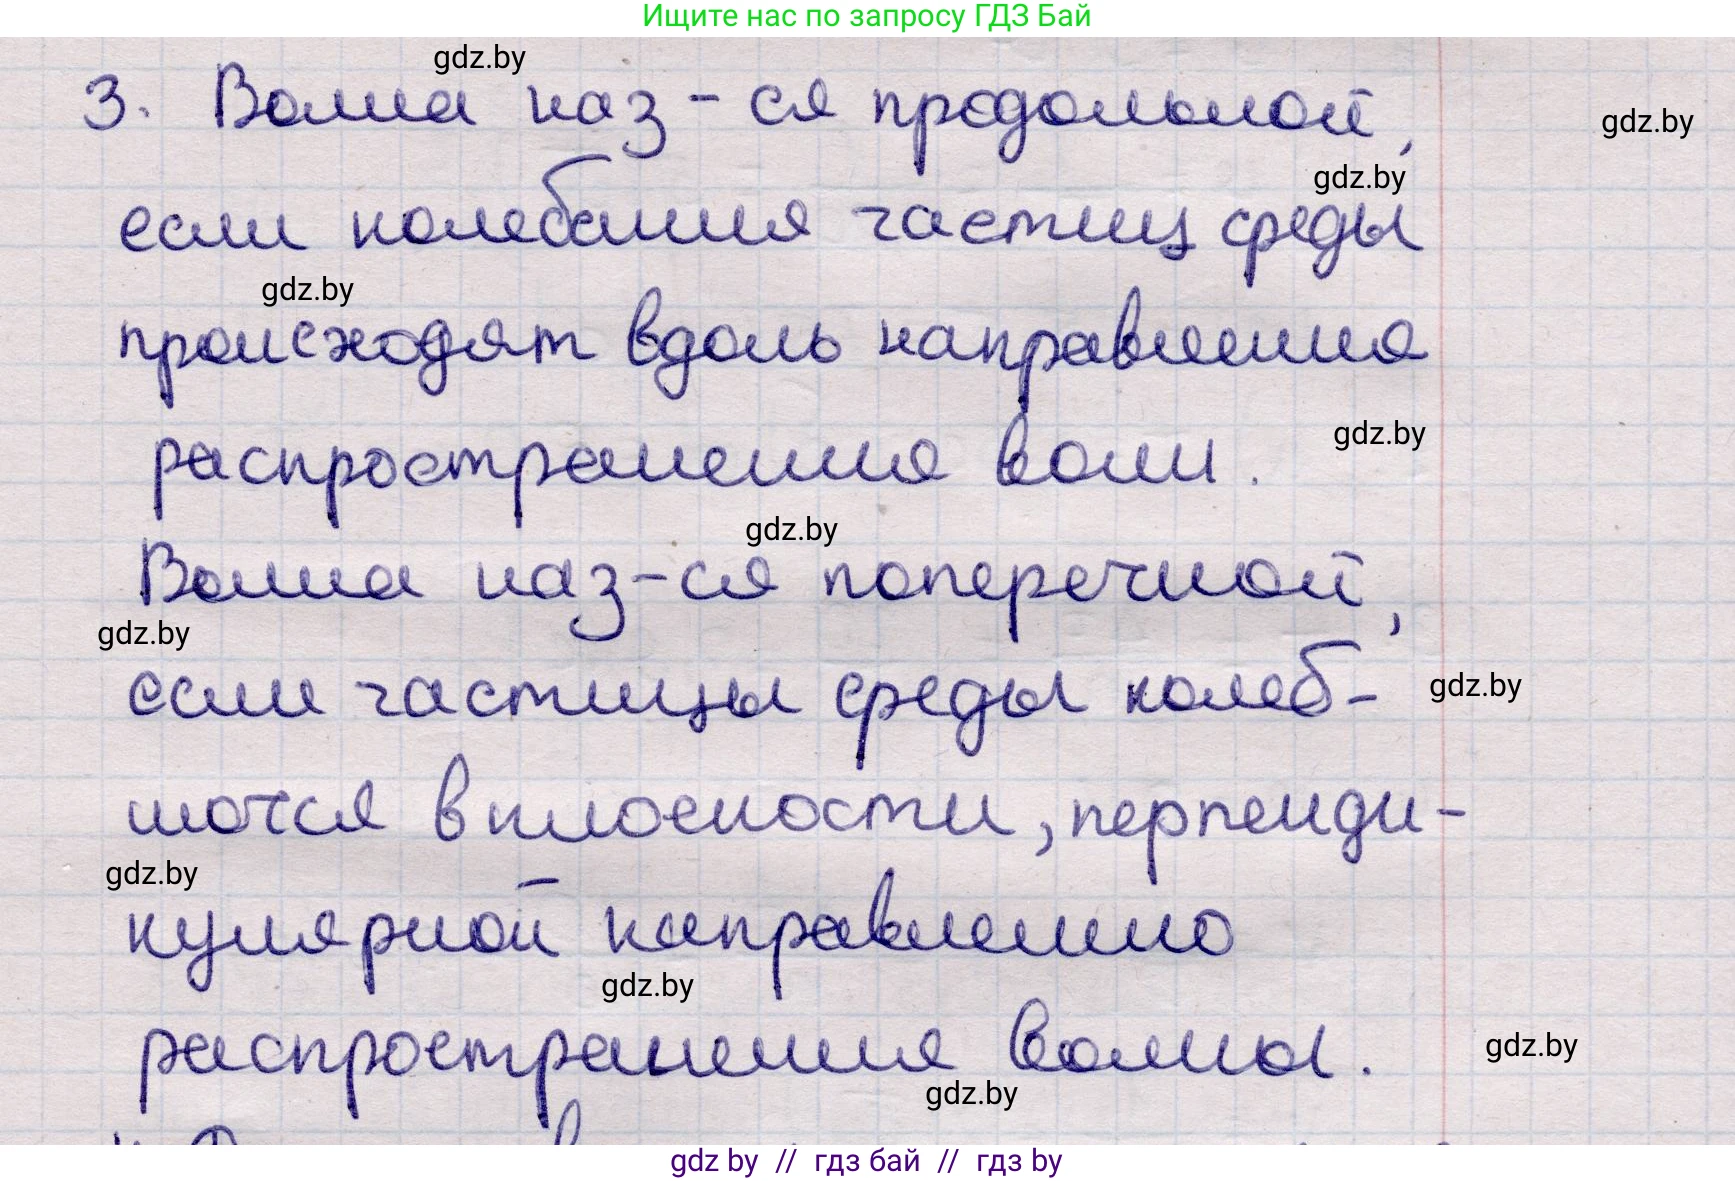 Ищите нас по запросу ГДЗ Бай
gdz.by
3. Волна наз-ся продольной,
gdz.by
gdz.by
если колебания частиц среды
gdz.by
происходят вдоль направления
распространения волн.
gdz.by
gdz.by
Волна наз-ся поперечной,
gdz.by
если частицы среды колеб-
gdz.by
лются в плоскости, перпенди-
gdz.by
кулярной направлению
gdz.by
распространения волны.
gdz.by
gdz.by
gdz by // гдз бай // гдз by